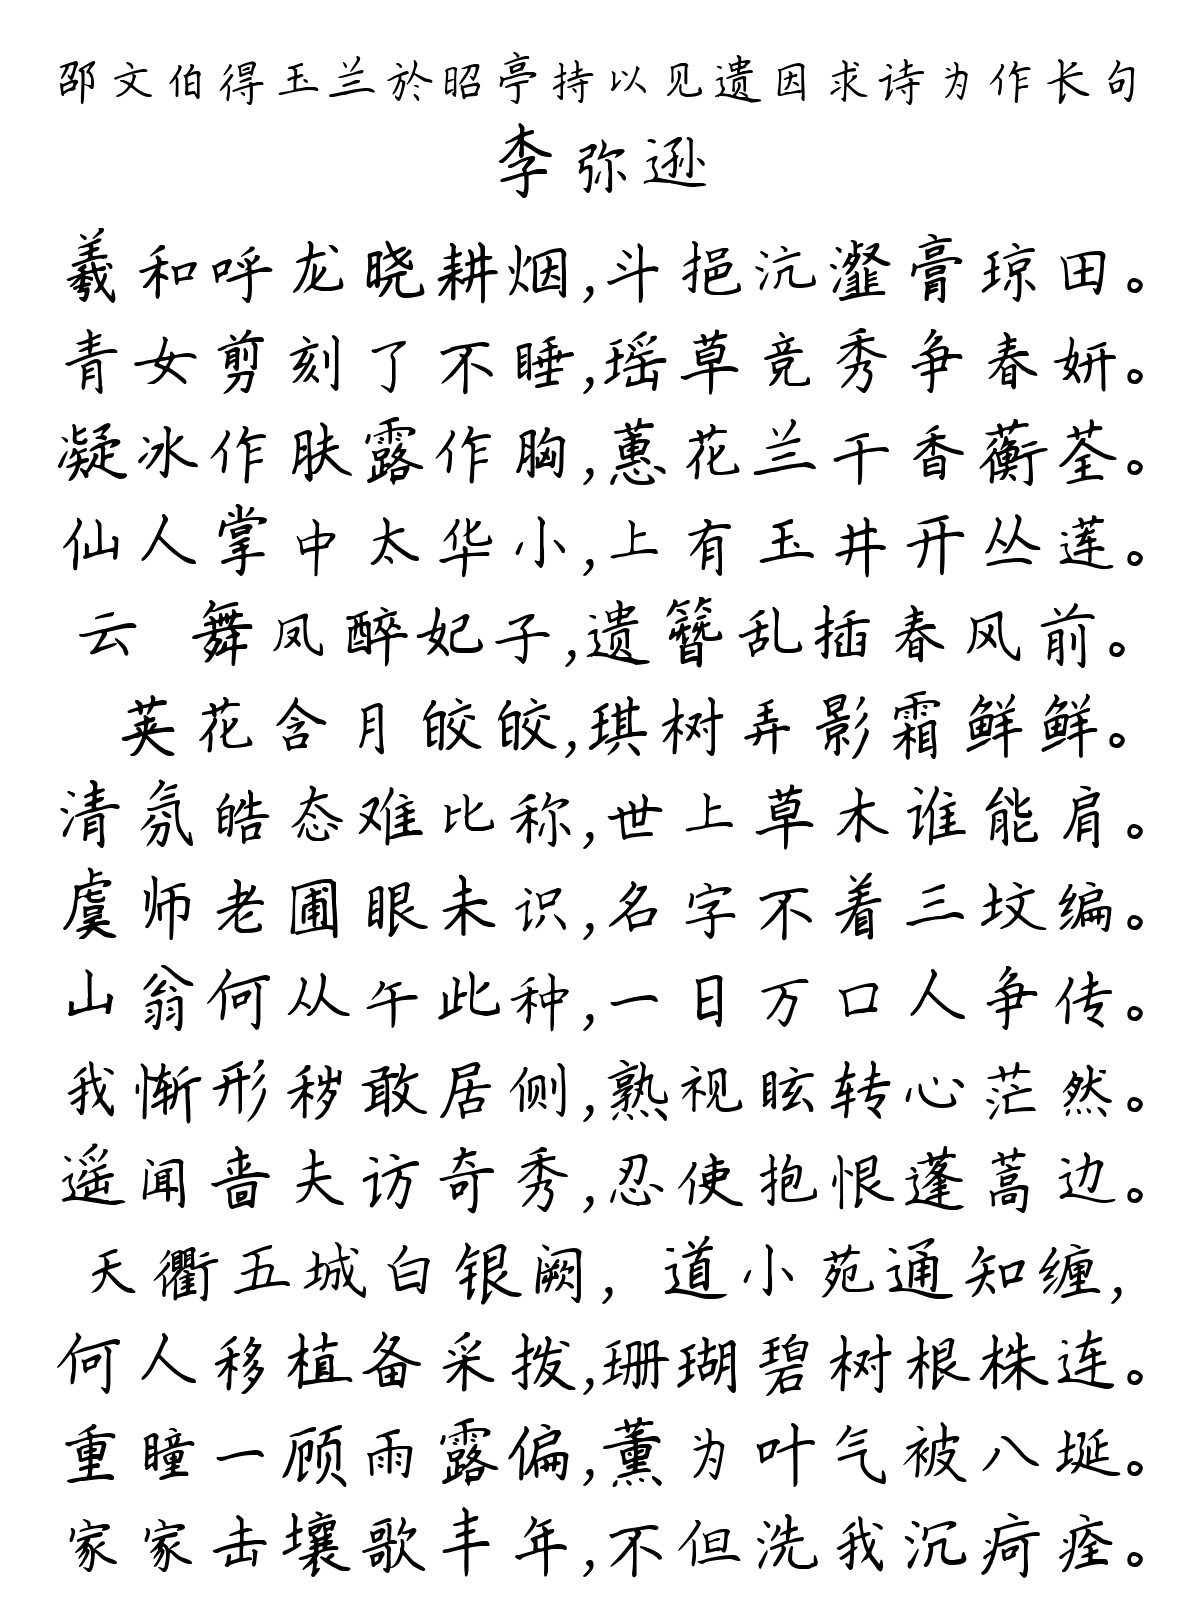 邵文伯得玉兰於昭亭持以见遗因求诗为作长句
李弥逊
羲和呼龙晓耕烟,斗挹沆瀣膏琼田。
青女剪刻了不睡,瑶草竞秀争春妍。
凝冰作肤露作胸,蕙花兰干香蘅荃。
仙人掌中太华小,上有玉井开丛莲。
云 舞凤醉妃子,遗簪乱插春风前。
荚花含月皎皎,琪树弄影霜鲜鲜。
清氛皓态难比称,世上草木谁能肩。
虞师老圃眼未识,名字不着三坟编。
山翁何从午此种,一日万口人争传。
我惭形秽敢居侧,熟视眩转心茫然。
遥闻啬夫访奇秀,忍使抱恨蓬蒿边。
天衢五城白银阙，道小苑通知缠，
何人移植备采拨,珊瑚碧树根株连。
重瞳一顾雨露偏,薰为叶气被八埏。
家家击壤歌丰年,不但洗我沉疴痊。